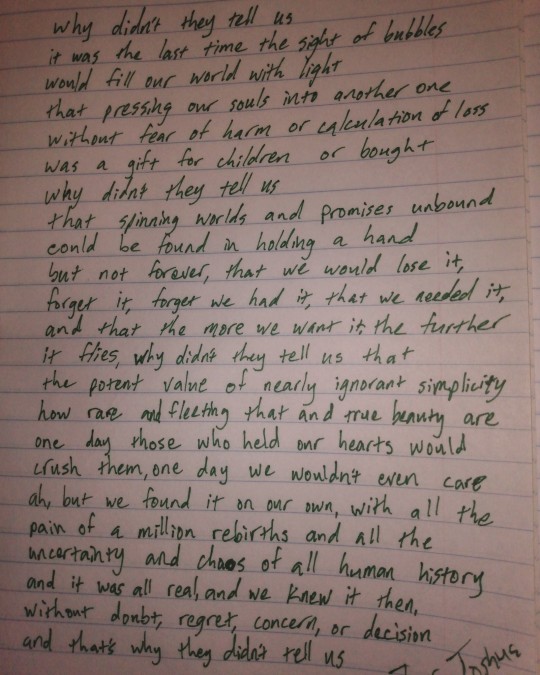 why didn't they tell us
it was the last time the sight of bubbles
would fill our world with light
that pressing our souls into another one
without fear of harm or calculation of loss
was a gift for children or bought
why didn't they tell us
that spinning worlds and promises unbound
could be found in holding a hand
but not forever, that we would lose it,
forget it, forget we had it, that we needed it,
and that the more we want it, the further
it flies, why didn't they tell us that
the potent value of nearly ignorant simplicity
how rare and fleeting that and true beauty are
one day those who held our hearts would
crush them, one day we wouldn't even care
ah, but we found it on our own, with all the
pain of a million rebirths and all the
uncertainty and chaos of all human history
and it was all real, and we knew it then,
without doubt, regret, concern, or decision
and that's why they didn't tell us
Joshua